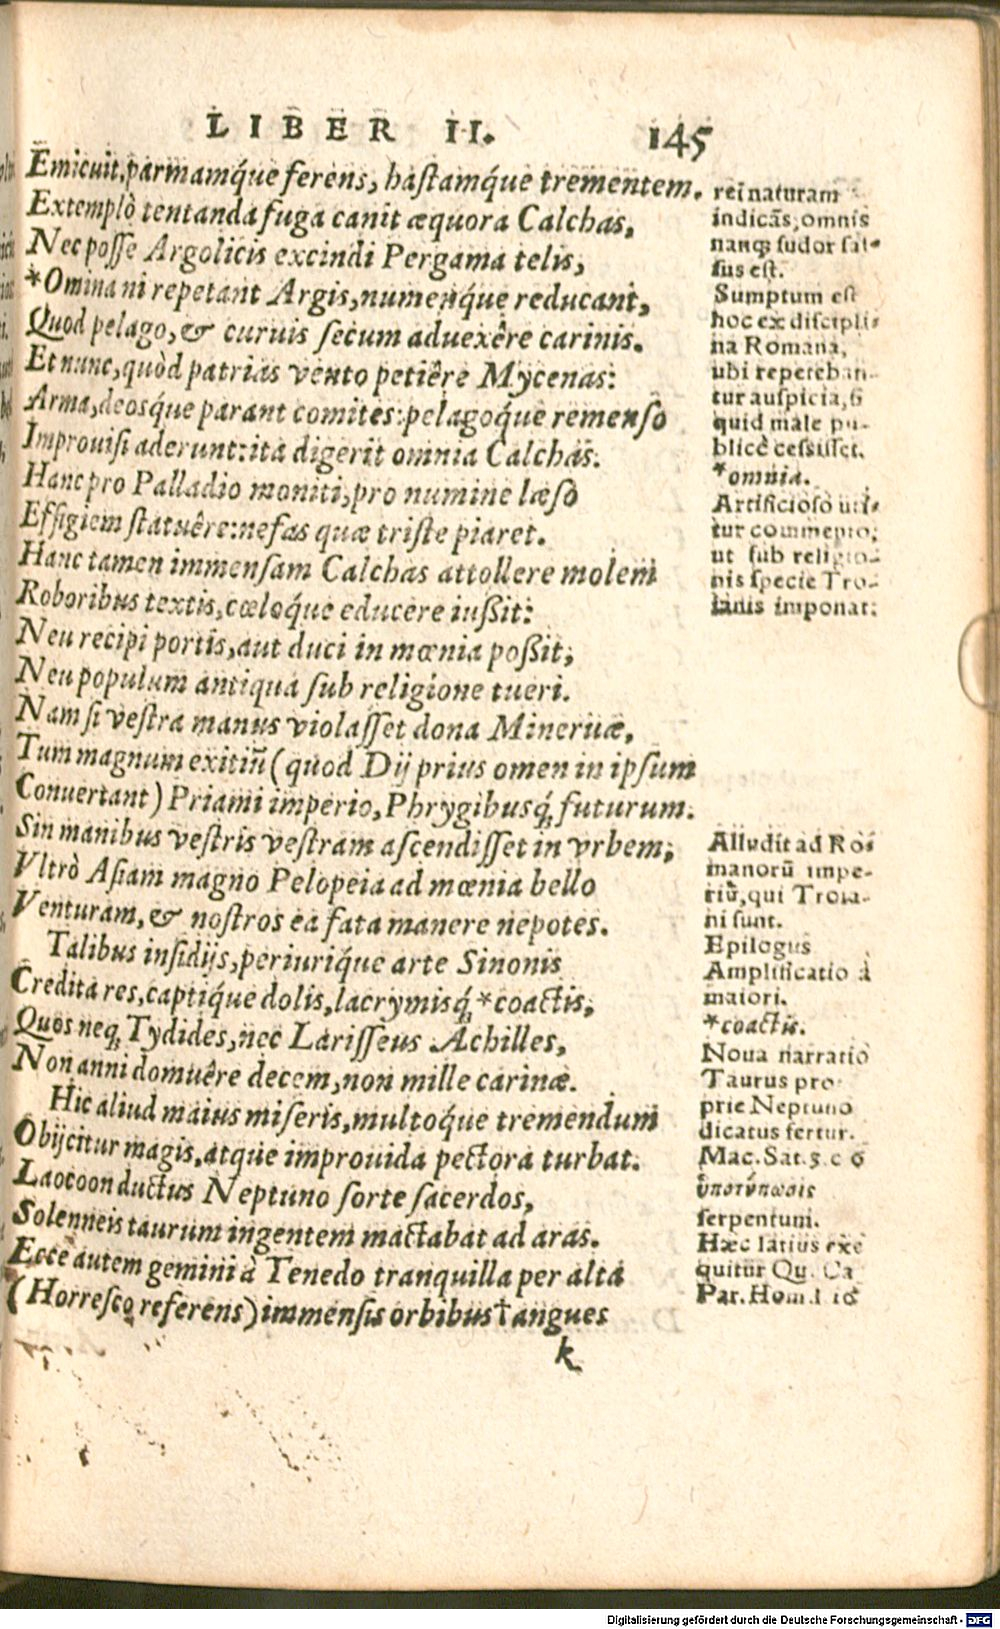 LIBER II. 145
Emicuit, parmamq́ue ferens, hastamq́ue trementem.
Extemplò tentanda fuga canit æquora Calchas,
Nec posse Argolicis excindi Pergama telis,
*Omina ni repetant Argis, numenq́ue reducant,
Quod pelago, & curuis secum aduexêre carinis.
Et nunc, quòd patrias vento petiêre Mycenas:
Arma, deosq́ue parant comites: pelagoq́ue remenso
Improuisi aderunt: ita digerit omnia Calchas.
Hanc pro Palladio moniti, pro numine læso
Effigiem statuêre: nefas quæ triste piaret.
Hanc tamen immensam Calchas attollere molem
Roboribus textis, cæloq́ue educere iußit:
Neu recipi portis, aut duci in mœnia poßit;
Neu populum antiqua sub religione tueri.
Nam si vestra manus violasset dona Mineruæ,
Tum magnum exitiũ (quod Dij prius omen in ipsum
Conuertant) Priami imperio, Phrygibusq́; futurum.
Sin manibus vestris vestram ascendisset in vrbem;
Vltrò Asiam magno Pelopeia ad mœnia bello
Venturam, & nostros ea fata manere nepotes.
Talibus insidijs, periuriq́ue arte Sinonis
Credita res, captiq́ue dolis, lacrymisq́; *coactis;
Quos neq; Tydides, nec Larisseus Achilles,
Non anni domuêre decem, non mille carinæ.
Hic aliud maius miseris, multoq́ue tremendum
Obijcitur magis, atque improuida pectora turbat.
Laocoon ductus Neptuno sorte sacerdos,
Solenneis taurum ingentem mactabat ad aras.
Ecce autem gemini à Tenedo tranquilla per alta
(Horresco referens) immensis orbibus †angues
k
rei naturam
indicãs, omnis
nanq; sudor sal-
sus est.
Sumptum est
hoc ex discipli-
na Romana,
ubi repeteban-
tur auspicia, si
quid male pu-
blicè cessisset.
*omnia.
Artificioso uti-
tur commento;
ut sub religio-
nis specie Tro-
ianis imponat.
Alludit ad Ro-
manorũ impe-
riũ, qui Troia-
ni sunt.
Epilogus
Amplificatio à
maiori.
*coactis.
Noua narratio
Taurus pro-
prie Neptuno
dicatus fertur.
Mac. Sat. 3. c 6
ὑποτύπωσις
serpentum.
Hæc latius exe
quitur Qu. Ca
Par. Hom. l. 10
Digitalisierung gefördert durch die Deutsche Forschungsgemeinschaft - DFG